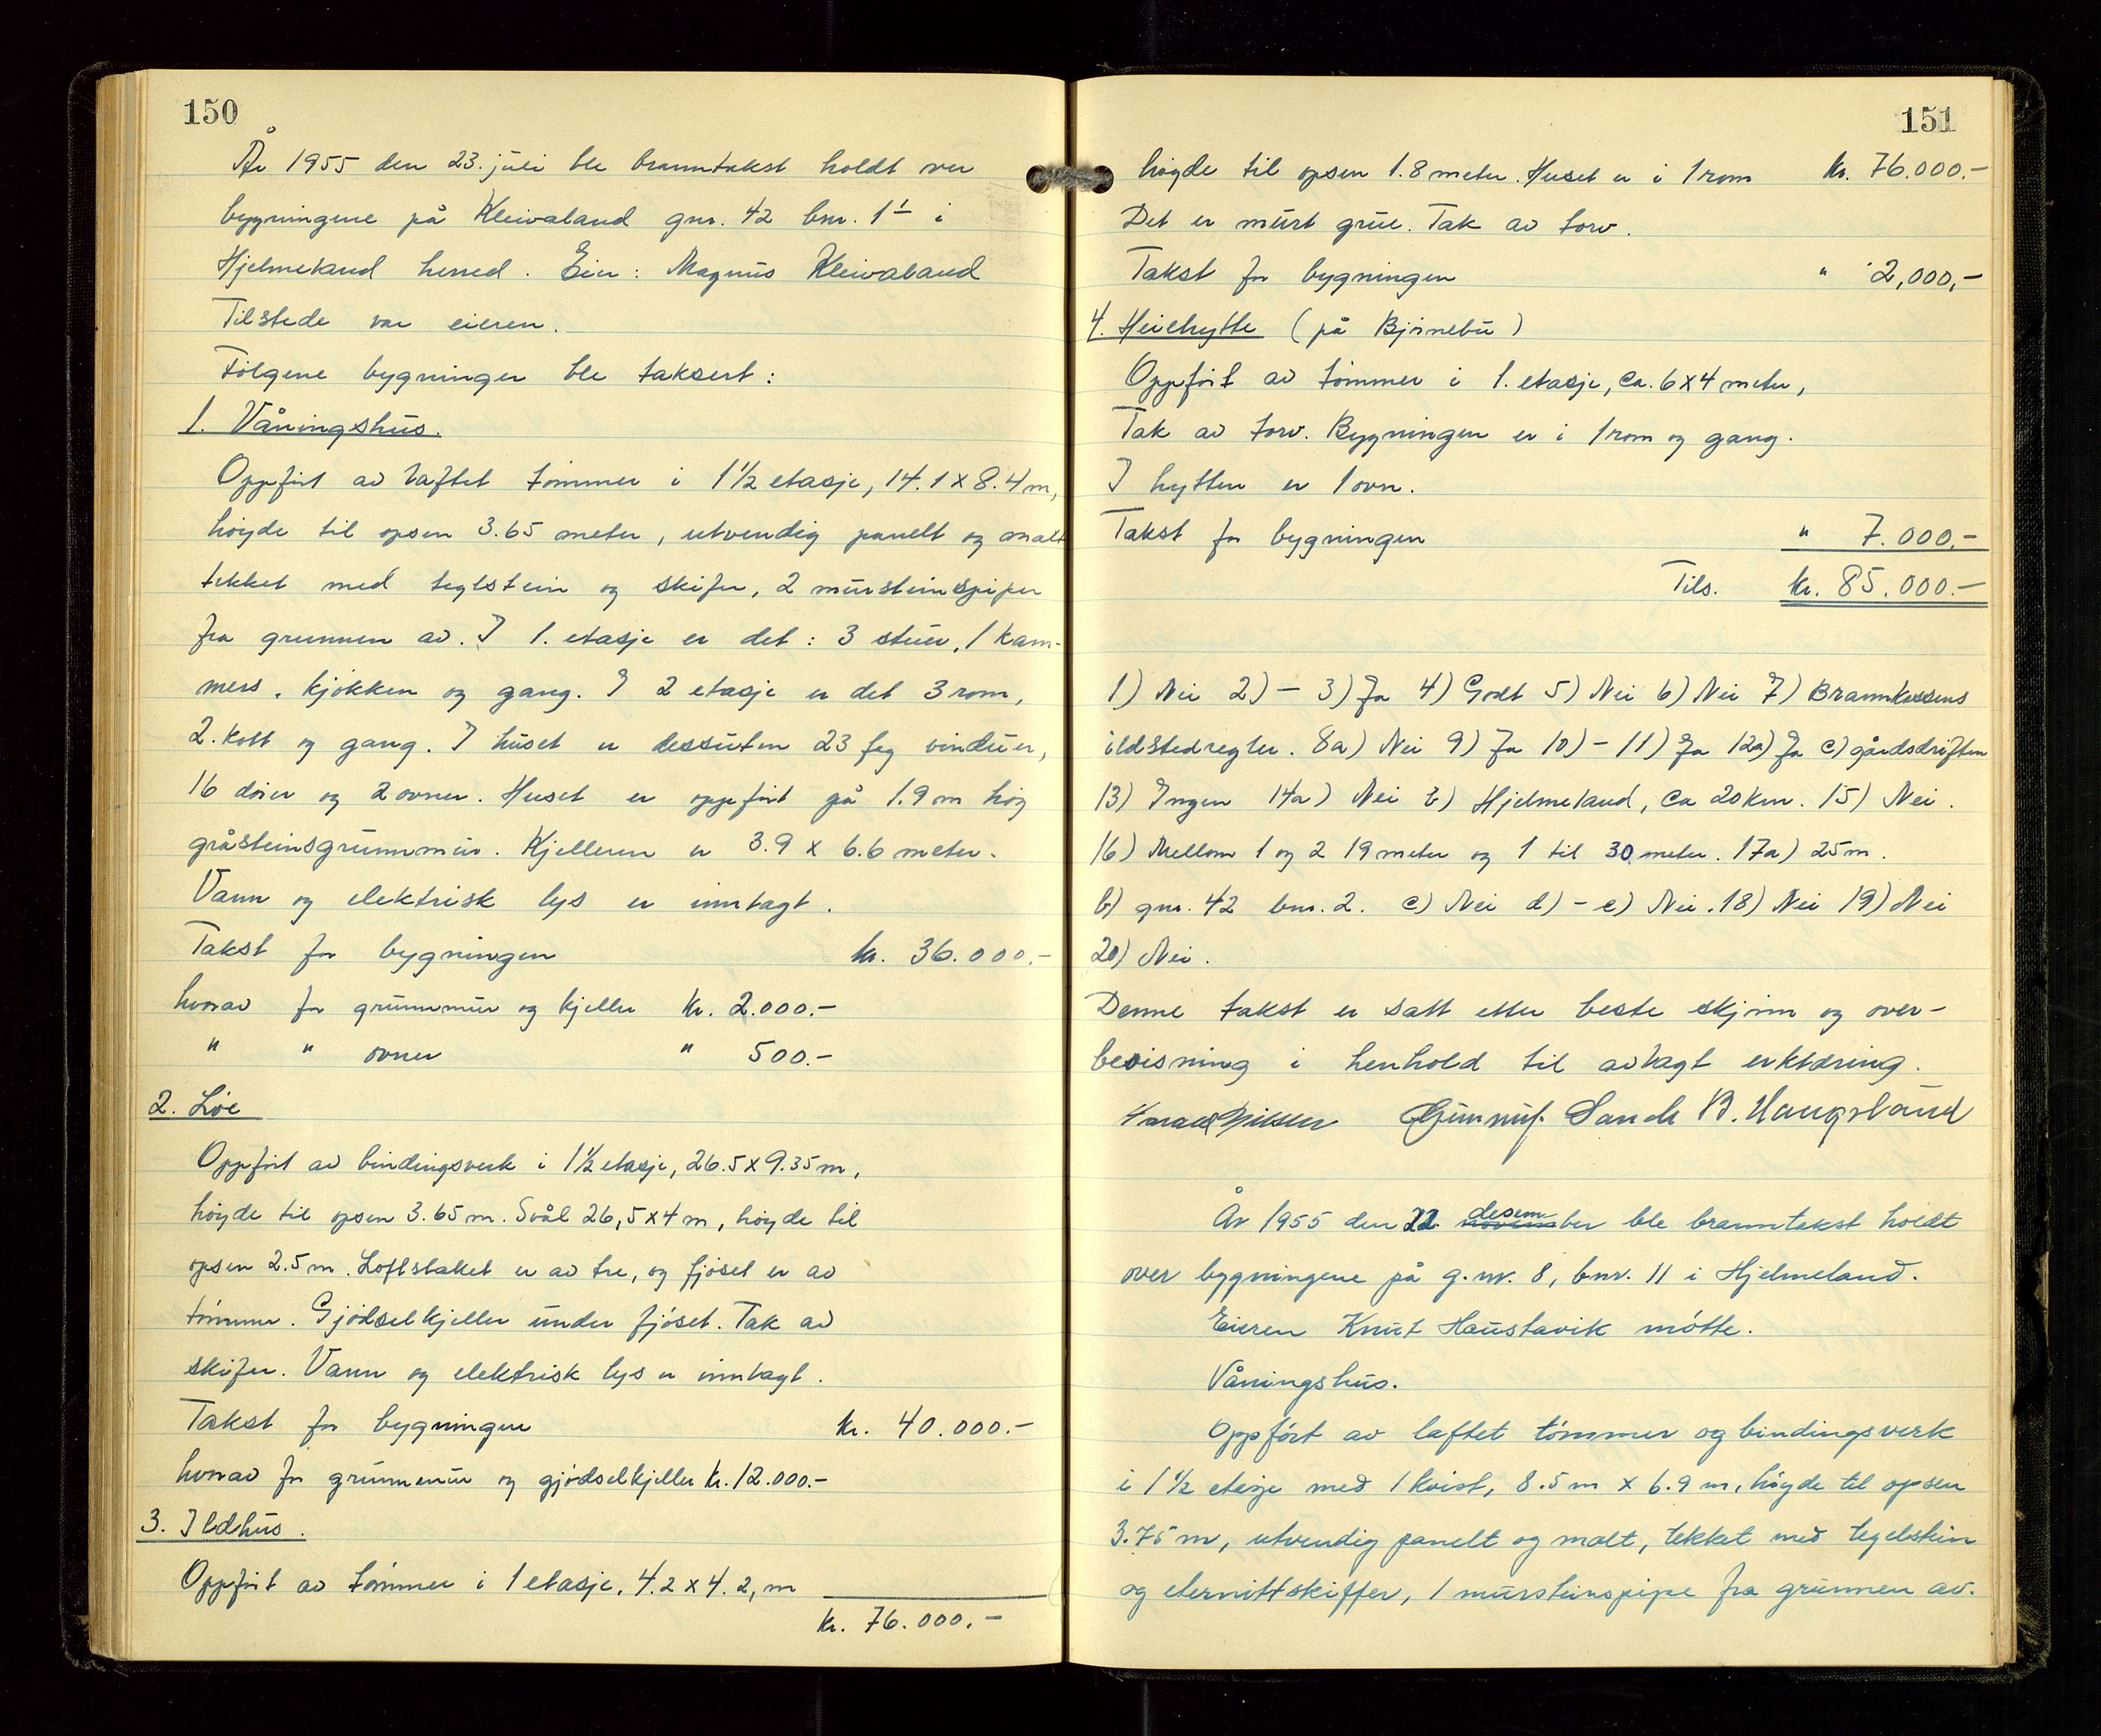 150
År 1955 den 23. juli ble branntakst holdt over
bygningene på Kleivaland gnr. 42 bnr. 1 i
Hjelmeland herred. Eier: Magnus Kleivaland
Tilstede var eieren.
Følgene bygninger ble taksert:
1. Våningshus.
Oppført av laftet tømmer i 1½ etasje, 14.1 x 8.4 m,
høyde til opsen 3.65 meter, utvendig panelt og malt
tekket med teglstein og skifer, 2 mursteinspiper
fra grunnen av. I 1. etasje er det: 3 stuer, 1 kam-
mers, kjøkken og gang. I 2 etasje er det 3 rom,
2. kott og gang. I huset er dessuten 23 fag vinduer,
16 dører og 2 ovner. Huset er oppført på 1.9 m høg
gråsteinsgrunnmur. Kjelleren er 3.9 x 6.6 meter.
Vann og elektrisk lys er innlagt.
Takst for bygningen kr. 36.000.-
hvorav for grunnmur og kjeller kr. 2.000.-
" " ovner " 500.-
2. Løe
Oppført av bindingsverk i 1½ etasje, 26.5 x 9.35 m,
høyde til opsen 3.65 m. Svål 26,5 x 4 m, høyde til
opsen 2.5 m. Loftstaket er av tre, og fjøset er av
tømmer. Gjødselkjeller under fjøset. Tak av
skifer. Vann og elektrisk lys er innlagt.
Takst for bygningen kr. 40.000.-
hvorav for grunnmur og gjødselkjeller kr. 12.000.-
3. Ildhus.
Oppført av tømmer i 1 etasje, 4.2 x 4.2, m
kr. 76.000.-
151
høyde til opsen 1.8 meter. Huset er i 1 rom kr. 76.000.-
Det er murt grue. Tak av torv.
Takst for bygningen " 2,000,-
4. Heiehytte (på Bjørnebu)
Oppført av tømmer i 1. etasje, ca. 6 x 4 meter,
Tak av torv. Bygningen er i 1 rom og gang.
I hytten er 1 ovn.
Takst for bygningen " 7.000.-
Tils. kr. 85.000.-
1) Nei 2) - 3) Ja 4) Godt 5) Nei 6) Nei 7) Brannkassens
ildstedregler. 8a) Nei 9) Ja 10) - 11) Ja 12a) Ja c) gårdsdriften
13) Ingen 14a) Nei b) Hjelmeland, ca 20 km. 15) Nei.
16) Mellom 1 og 2 19 meter og 1 til 30 meter. 17a) 25 m.
b) gnr. 42 bnr. 2. c) Nei d) - e) Nei. 18) Nei 19) Nei
20) Nei.
Denne takst er satt etter beste skjønn og over-
bevisning i henhold til avlagt erklæring.
Gunnulf Sande B. Haugsland
År 1955 den 22. desem november ble branntakst holdt
over bygningene på g.nr. 8, bnr. 11 i Hjelmeland.
Eieren Knut Haustavik møtte.
Våningshus.
Oppført av laftet tømmer og bindingsverk
i 1½ etasje med 1 kvist, 8.5 m x 6.9 m, høyde til opsen
3.75 m, utvendig panelt og malt, tekket med tegelstein
og eternittskiffer, 1 mursteinspipe fra grunnen av.